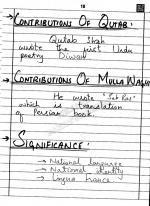 18
→ CONTRIBUTIONS OF QUTAB:
Qutab Shah
wrote the first Urdu
poetry Diwan
→ CONTRIBUTIONS OF MULLA WAJHI
He wrote "Sab Ras"
which is translation
of Persian book.
→ SIGNIFICANCE:
→ National language
→ National identity
→ Lingua franca